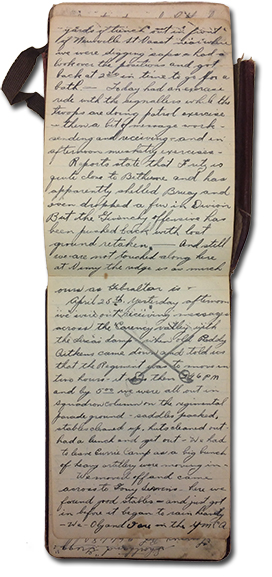 yards of trench out in front
of Neuville St Vaast
we were digging and so had a
look over the positions and got
back at 2 in time to go for a
bath — Today had an exercise
ride with the signallers while the
troops are doing patrol exercise
— then a bit of message work
sending and receiving — and in
afternoon musketry exercises —
Reports state that Fritz is
quite close to Bethune and has
apparently shelled Bruay and
even dropped a few in Divion
But the Givenchy offensive has
been pushed back with lost
ground retaken, — And still
we are not touched along here
at Vimy the ridge is as much
ours as Gibraltar is —
April 25th Yesterday afternoon
we were out receiving messages
across the Carency valley with
the lucas lamp when old Paddy
Aitkens came down and told us
that the Regiment was to move in
two hours — it was then 3.46 PM
and by 5 we were all out in
squadron column on the regimental
parade ground — saddles packed,
stables cleaned up, huts cleaned out
had a lunch and got out — We had
to leave Currie Camp as a big bunch
of heavy artillery were moving in —
We moved off and came
across to Here we
found good stables — and just got
in before it began to rain
— We and on the YMCA